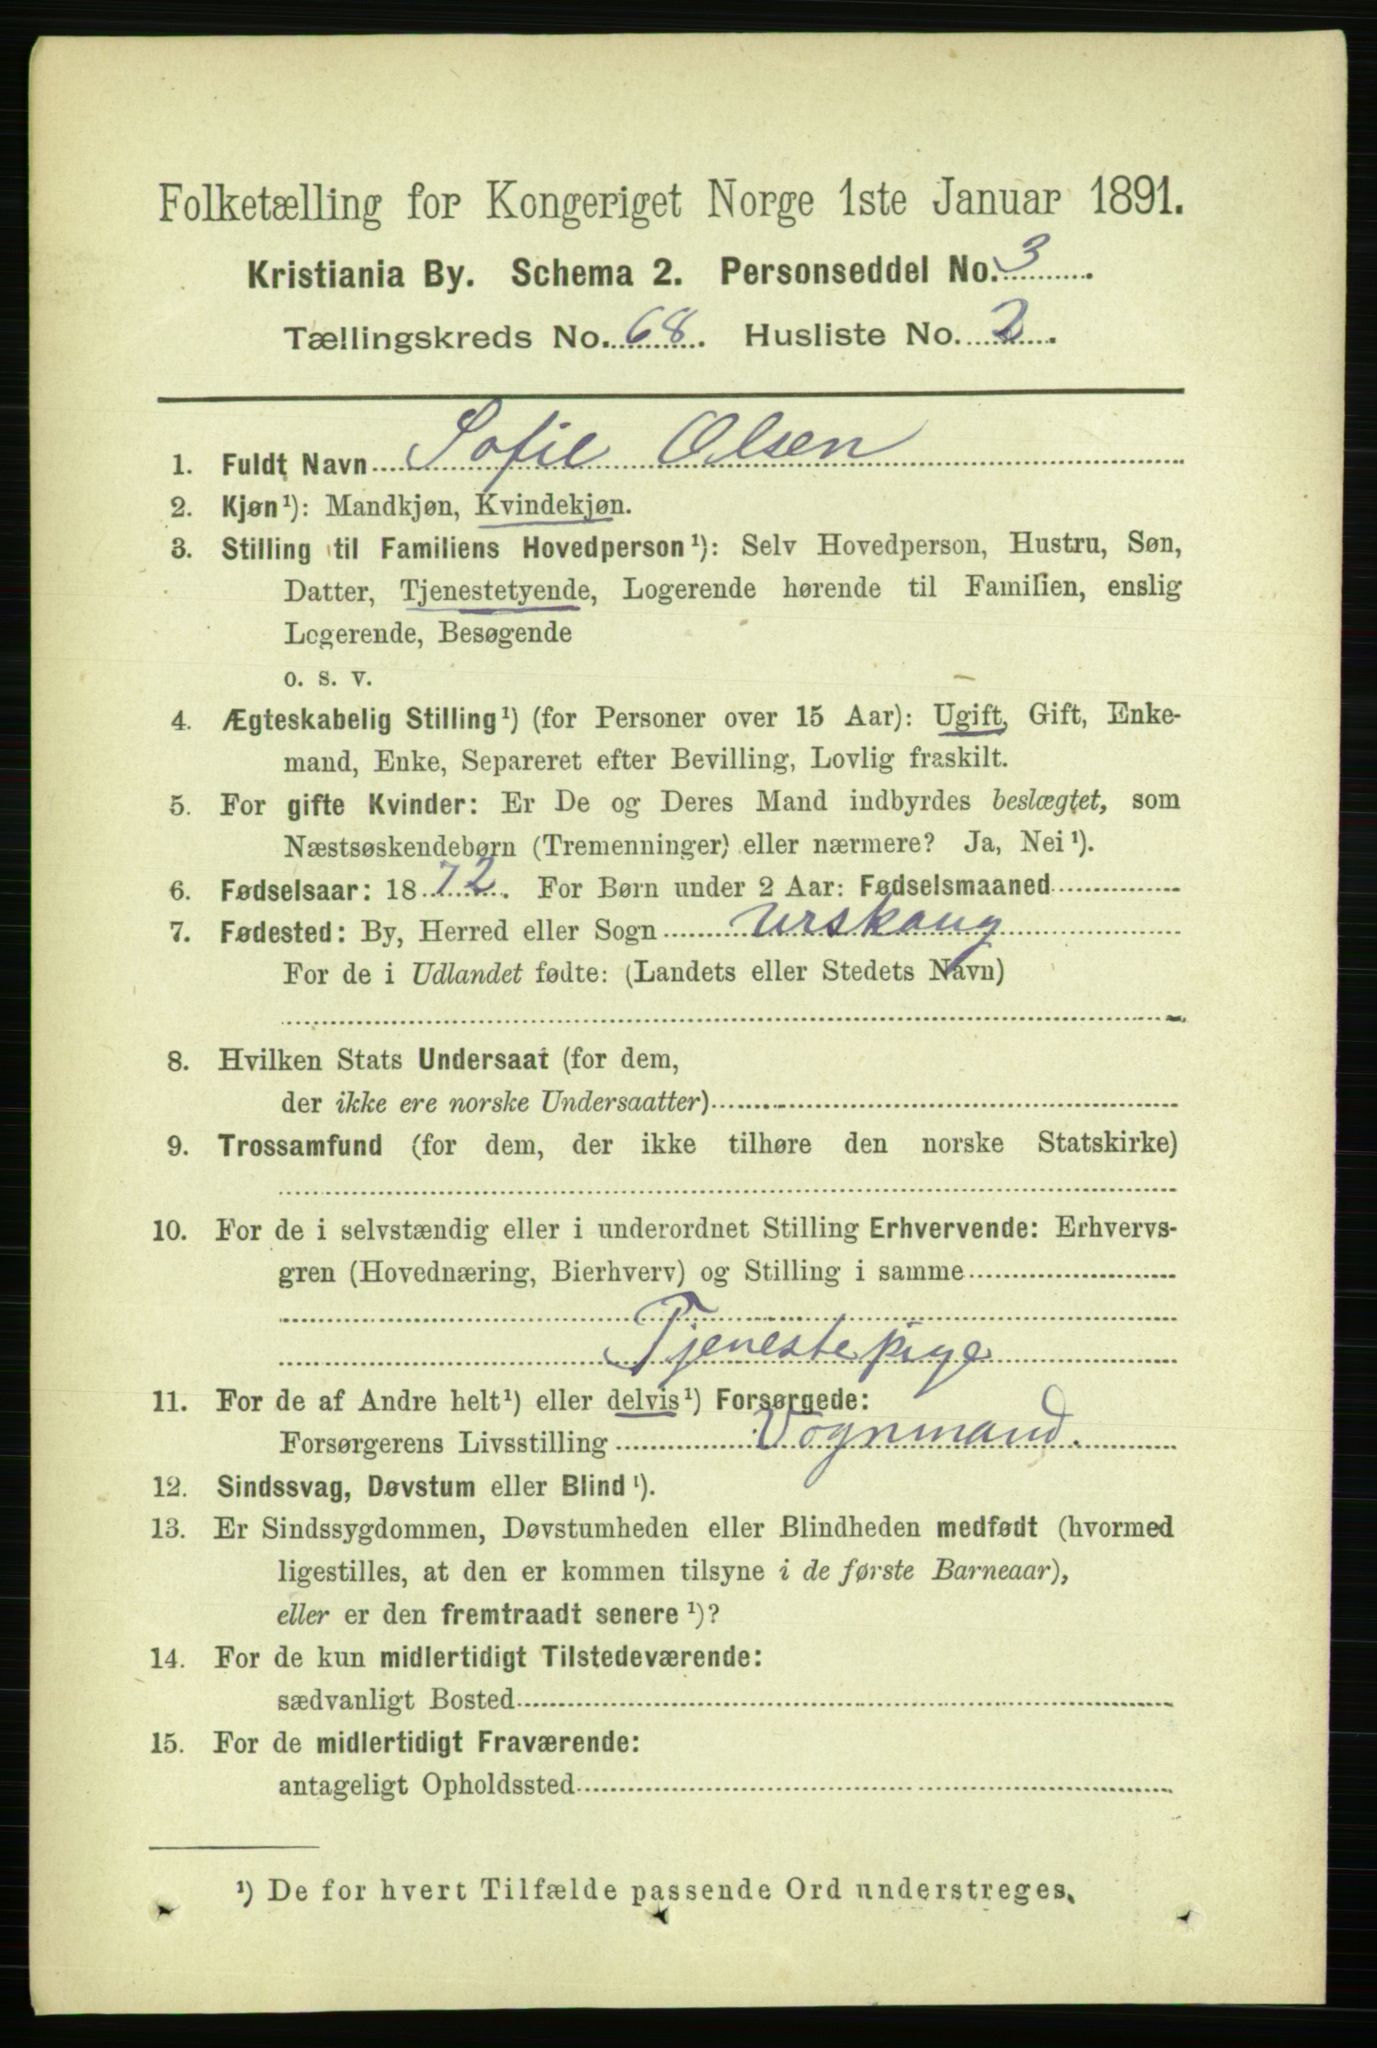 Folketælling for Kongeriget Norge 1ste Januar 1891.
Kristiania By. Schema 2. Personseddel No. 3.
Tællingskreds No. 68. Husliste No. 2.
1. Fuldt Navn Sofie Olsen
2. Kjøn¹): Mandkjøn, Kvindekjøn.
3. Stilling til Familiens Hovedperson¹): Selv Hovedperson, Hustru, Søn,
Datter, Tjenestetyende, Logerende hørende til Familien, enslig
Logerende, Besøgende
o. s. v.
4. Ægteskabelig Stilling¹) (for Personer over 15 Aar): Ugift, Gift, Enke-
mand, Enke, Separeret efter Bevilling, Lovlig fraskilt.
5. For gifte Kvinder: Er De og Deres Mand indbyrdes beslægtet, som
Næstsøskendebørn (Tremenninger) eller nærmere? Ja, Nei¹).
6. Fødselsaar: 1872. For Børn under 2 Aar: Fødselsmaaned
7. Fødested: By, Herred eller Sogn Urskoug
For de i Udlandet fødte: (Landets eller Stedets Navn)
8. Hvilken Stats Undersaat (for dem,
der ikke ere norske Undersaatter)
9. Trossamfund (for dem, der ikke tilhøre den norske Statskirke)
10. For de i selvstændig eller i underordnet Stilling Erhvervende: Erhvervs-
gren (Hovednæring, Bierhverv) og Stilling i samme
Tjenestepige
11. For de af Andre helt¹) eller delvis¹) Forsørgede:
Forsørgerens Livsstilling Vognmand.
12. Sindssvag, Døvstum eller Blind¹).
13. Er Sindssygdommen, Døvstumheden eller Blindheden medfødt (hvormed
ligestilles, at den er kommen tilsyne i de første Barneaar),
eller er den fremtraadt senere¹)?
14. For de kun midlertidigt Tilstedeværende:
sædvanligt Bosted
15. For de midlertidigt Fraværende:
antageligt Opholdssted
¹) De for hvert Tilfælde passende Ord understreges.